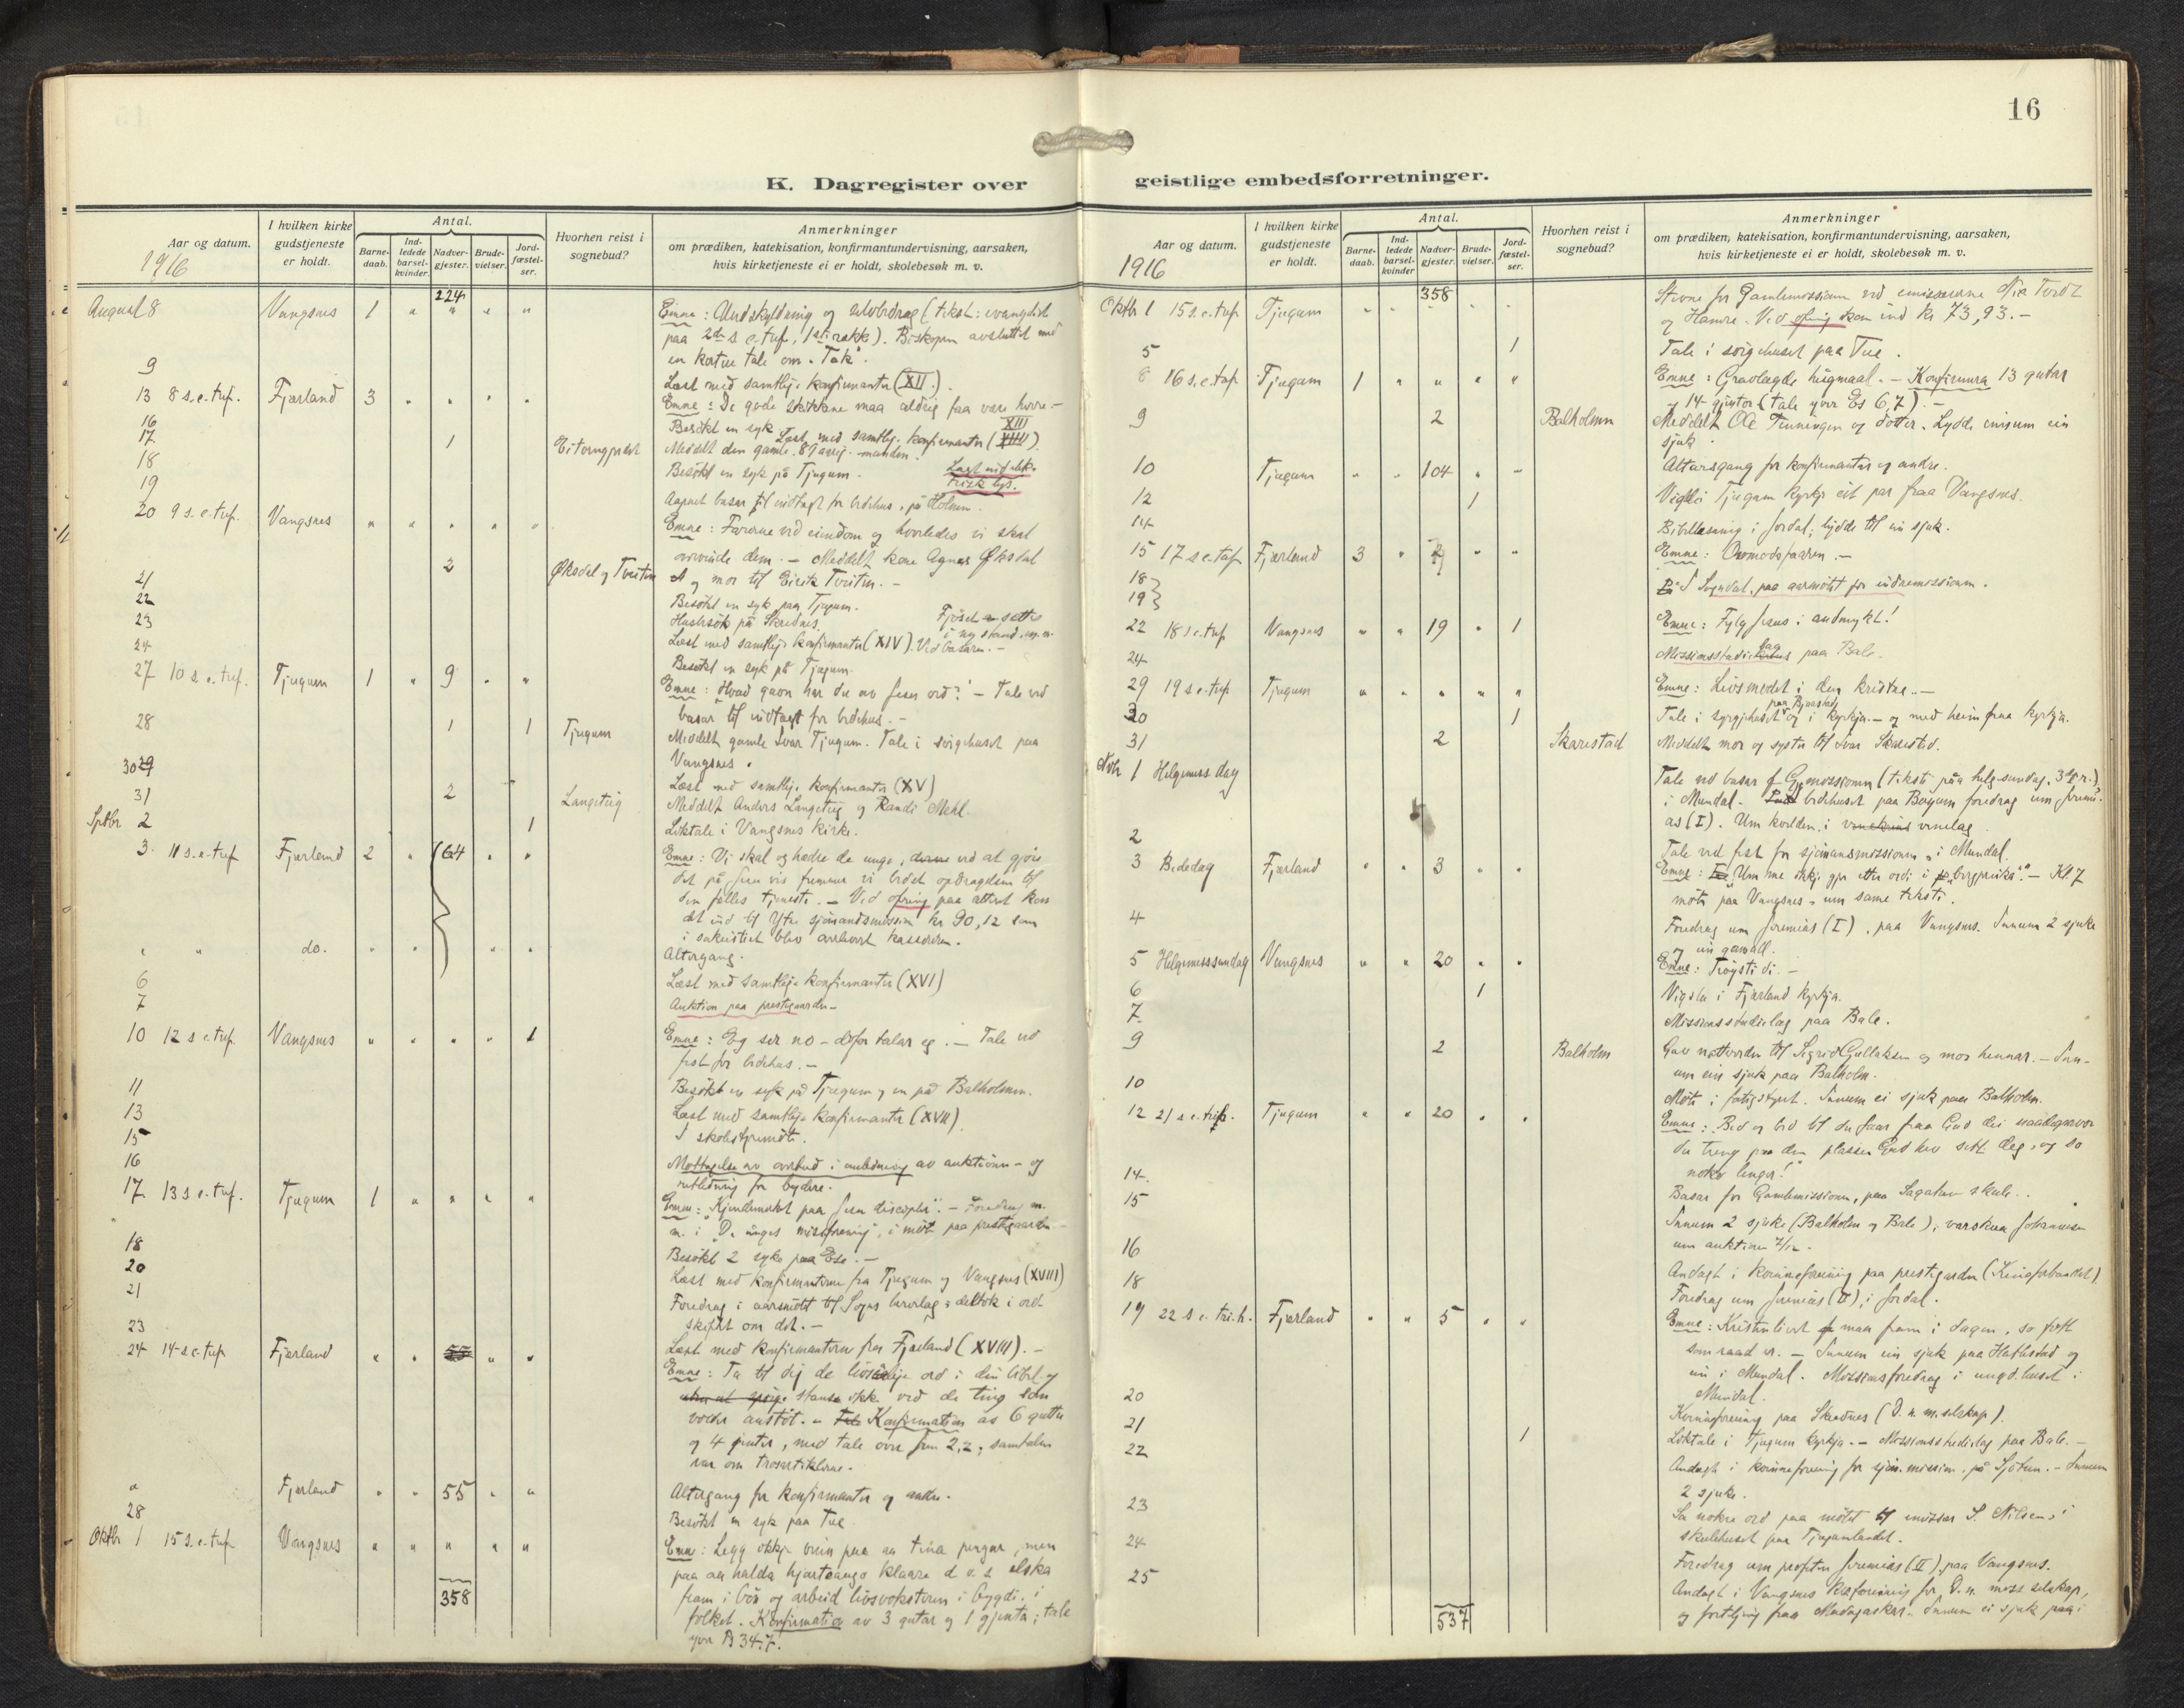 16
K. Dagregister over geistlige embedsforretninger.
Aar og datum.
1916
I hvilken kirke gudstjeneste er holdt.
Antal.
Barne-daab.
Ind-ledede barsel-kvinder.
Nadver-gjester.
Brude-vielser.
Jord-fæstel-ser.
Hvorhen reist i sognebud?
Anmerkninger
om prædiken, katekisation, konfirmantundervisning, aarsaken,
hvis kirketjeneste ei er holdt, skolebesøk m. v.
224
August 8 Vangsnes 1 " " " " Emne: (tekst:
paa 2den s. e. tref., 1ste række). Biskopen avsluttet med
en kortere tale om "Tak".
9 Læst med samtlige konfirmanter (XII).
13 8 s. e. tref. Fjærland 3 " " " " Emne: De gode maa aldrig faa være
16 Besøkt en syk. Læst med samtlige konfirmanter (XIII)
17 1 Meddelt den gamle 89 aarig manden.
18 Besøkt en syk på Tjugum.
19 Aapnet basar til indtægt for bedehus, på Holmen.
20 9 s. e. tref. Vangsnes " " " " " Emne: Farerne ved eiendom og hvorledes vi skal
2 Øksdal og Tveiten overvinde dem. - Meddelt kone Agnes Øksdal
og mor til Eirik Tveiten. -
21
22 Besøkt en syk paa Tjugum.
23 Husbesøk på Skrednes.
24 Læst med samtlige konfirmanter (XIV). Ved basaren. -
Besøkt en syk på Tjugum.
27 10 s. e. tref. Tjugum 1 " 9 " " Emne: "Hvad gavn har du av Jesu ord?" - Tale ved
basar til indtægt for bedehus. -
28 1 1 Tjugum Meddelt gamle Ivar Tjugum. Tale i sørgehuset paa
Vangsnes.
30 29 Læst med samtlige konfirmanter (XV)
31 2 Langeteig Meddelt Anders Langeteig og Randi Mehl.
Septbr 2 1 Liktale i Vangsnes kirke.
3. 11 s. e. tref Fjærland 2 " 64 " " Emne: Vi skal og hædre de unge, ved at gjøre
det på Jesu vis fremmer vi bedst opdragelsen til
den fælles tjeneste. - Ved ofring paa alteret kom
det ind til Ytre sjømandsmission kr 90,12 som
i sakristiet blev overlevert kassereren.
" " do. " " " " Altergang.
6 Læst med samtlige konfirmanter (XVI)
7 Auktion paa prestegaarden
10 12 s e. tref. Vangsnes " " " " 1 Emne: Eg ser no - difor talar eg. - Tale ved
fest for bedehus. -
11 Besøkt en syk på Tjugum og en på Balholmen.
13 Læst med samtlige konfirmanter (XVII)
15 I skolestyremøte.
16 Mottagelse av overbud i anledning av auktionen - og
rettledning for bydere.
17. 13 s e. tref. Tjugum 1 " " " " Emne: "Kjendemerket paa Jesu disciple". - Foredrag m.
m. i "De unges missforening", i møte paa prestegaarden -
18 Besøkt 2 syke paa Ese. -
20 Læst med konfirmanterne fra Tjugum og Vangsnes (XVIII)
21 Foredrag i aarsmøtet til Sogns lærerlag; deltok i ord-
skiftet om det. -
23 Læst med konfirmanterne fra Fjærland (XVIII). -
24 14 s. e. tref Fjærland " " " " Emne: Ta til dig de livsalige ord i din bibel og
stanse ikke ved de ting som
vækker anstøt. - Konfirmation av 6 gutter
og 4 jenter, med tale over 2,2; samtalen
var om trosartiklerne.
" Fjærland " " 55 " " Altergang for konfirmanter og andre.
28 Besøkt en syk paa Tue.
Oktbr 1 15 s. e. tref Vangsnes " " " " " Emne: Legg ikkje vinn paa aa tena pengar, men
paa aa halda hjarteauga klaare d. v. s. elska
fram i bøn og arbeid livsvoksteren i bygdi, i
folket. - Konfirmation av 3 gutar og 1 gjenta; tale
yver
358
Aar og datum.
1916
I hvilken kirke gudstjeneste er holdt.
Antal.
Barne-daab.
Ind-ledede barsel-kvinder
Nadver-gjester.
Brude-vielser.
Jord-fæstel-ser.
Hvorhen reist i sognebud?
Anmerkninger
om prædiken, katekisation, konfirmantundervisning, aarsaken,
hvis kirketjeneste ei er holdt, skolebesøk m. v.
358
Oktbr 1 15 s. e. tref Tjugum " " " " Stevne for Gamlemissionen ved emissærerne
og Hamre. Ved ofring kom ind kr 73,93. -
5 1 Tale i sørgehuset paa Tue.
8 16 s. e. tref Tjugum 1 " " " " Emne: Gravlægde hugmaal. - Konfirmera 13 gutar
og 14 gjentor (tale yver Es 6,7). -
9 2 Balholmen Meddelt Ole og dotter. Lydde innum ein
sjuk.
10 Tjugum " " 104 " " Altarsgang for konfirmantar og andre.
12 1 Vigde i Tjugum kyrkje eit par fraa Vangsnes.
14 Bibellesning i Jordal; lydde til ein sjuk.
15 17 s e. tref Fjærland 3 " " " Emne: Ovmodsfaaren. -
18
19 I Sogndal, paa aarmøtet for indremissionen.
22 18 s e. tref Vangsnes " " 19 " 1 Emne: Fylg Jesus i audmykt!
24 Missionsstudielag paa Bale.
29 19 s e. tref Tjugum " " " " " Emne: Livsmodet i den kristne. -
30 1 Tale i syrgjehuset og i kyrkja. - og med heim fraa kyrkja.
31 2 Skarestad Meddelt mor og syster til Ivar Skarestad.
Novbr 1 Helgemess dag Tale ved basar f. Gmissionen (tekst paa helg.sundag, 3dje r.)
i Mundal. - bedehuset paa Bøyum foredrag um Jeremi-
as (I). Um kvelden i vinelag
2 Tale ved fest for sjømansmissionen, i Mundal.
3 Bededag Fjærland " " 3 " " Emne: Um me ikkje gjer etter ordi i bergpreika". - Kl 7
møte paa Vangsnes, um same tekst.
4 Foredrag um Jeremias (I), paa Vangsnes. Innum 2 sjuke
og ein gamall.
5 Helgemesssundag Vangsnes " " 20 " " Emne: Trøysti di. -
6 1 Vigsla i Fjærland kyrkja.
7. Missionsstudielag paa Bale.
9 2 Balholm Gav nattverden til Sigrid Gullaksen og mor hennar. - Inn-
um ein sjuk paa Balholm.
10 Møte i fatigstyret. Innum ei sjuk paa Balholm.
12 21 s e. trif. Tjugum " " 20 " " Emne: Bed og bed til du faar fraa Gud dei naadegaavor
du treng paa den plassen Gud hev sett deg, og so
noko lenger!
14. Basar for Gamlemissionen, paa Sagatun skule.
15 Innum 2 sjuke (Balholm og Bale); varskua Johannesen
um auktion 7/12.
16 Andagt i kvinneforening paa prestegarden (Kinaforbundet)
18 Foredrag um Jeremias (II), i Jordal.
19 22 s e. tri.h. Fjærland " " 5 " " Emne: Kristenlivet maa fram i dagen, so fort
som raad er. - Innum ein sjuk paa Hatlestad og
ein i Mundal. Missionsforedrag i ungd.huset i
Mundal.
20 Kvinneforening paa Skrednes (D. n. m. selskap).
21 1 Liktale i Tjugum kyrkja. - Missionsstudielag paa Bale. -
22 Andagt i kvinneforening for sjøm. mission, på Sjøtun. - Innum
2 sjuke.
23 Sa nokre ord paa møtet til emissær S. Nilsen, i
skulehuset paa Tjugumlandet.
24 Foredrag um profeten Jeremias (II), paa Vangsnes.
25 Andagt i Vangsnes kvforening for D. n. miss selskap,
og forteljing fraa Madagaskar. Innum ei sjuk
537